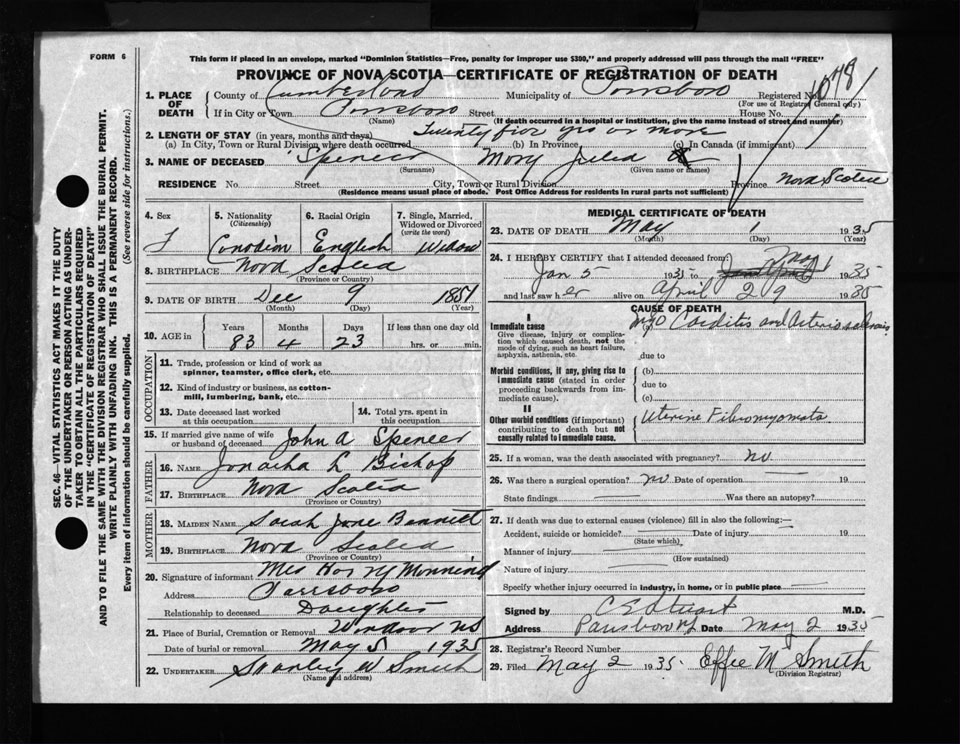 FORM 6
This form if placed in an envelope, marked "Dominion Statistics—Free, penalty for improper use $300," and properly addressed will pass through the mail "FREE"
PROVINCE OF NOVA SCOTIA—CERTIFICATE OF REGISTRATION OF DEATH
1. PLACE OF DEATH
County of Cumberland Municipality of Parrsboro Registered No. 1078
(For use of Registrar General only)
If in City or Town Parrsboro Street House No.
(Name) (If death occurred in a hospital or institution, give the name instead of street and number)
2. LENGTH OF STAY (in years, months and days) Twenty five yrs or more
(a) In City, Town or Rural Division where death occurred (b) In Province (c) In Canada (if immigrant)
3. NAME OF DECEASED Spencer Mary Julia
(Surname) (Given name or names)
RESIDENCE No. Street City, Town or Rural Division Province Nova Scotia
(Residence means usual place of abode. Post Office Address for residents in rural parts not sufficient)
4. Sex
F
5. Nationality
(Citizenship)
Canadian
6. Racial Origin
English
7. Single, Married, Widowed or Divorced
(write the word)
Widow
8. BIRTHPLACE Nova Scotia
(Province or Country)
9. DATE OF BIRTH Dec 9 1851
(Month) (Day) (Year)
10. AGE in
Years Months Days If less than one day old
83 4 23 hrs. or min.
OCCUPATION
11. Trade, profession or kind of work as
spinner, teamster, office clerk, etc.
12. Kind of industry or business, as cotton-
mill, lumbering, bank, etc.
13. Date deceased last worked
at this occupation
14. Total yrs. spent in
this occupation
15. If married give name of wife
or husband of deceased John A Spencer
FATHER
16. NAME L Bishop
17. BIRTHPLACE Nova Scotia
(Province or Country)
MOTHER
18. MAIDEN NAME Sarah Jane Bennett
19. BIRTHPLACE Nova Scotia
(Province or Country)
20. Signature of informant Mrs
Address Parrsboro
Relationship to deceased Daughter
21. Place of Burial, Cremation or Removal Windsor NS
Date of burial or removal May 5 1935
22. UNDERTAKER Stanley W Smith
(Name and address)
MEDICAL CERTIFICATE OF DEATH
23. DATE OF DEATH May 1 1935
(Month) (Day) (Year)
24. I HEREBY CERTIFY that I attended deceased from:
Jan 5 1935 to May 1 1935
and last saw her alive on April 29 1935
CAUSE OF DEATH
I
Immediate cause
Give disease, injury or complica-
tion which caused death, not the
mode of dying, such as heart failure,
asphyxia, asthenia, etc.
(a) Myo Carditis and Arteriosclerosis
due to
Morbid conditions, if any, giving rise to
immediate cause (stated in order
proceeding backwards from im-
mediate cause).
(b)
due to
(c)
II
Other morbid conditions (if important)
contributing to death but not
causally related to immediate cause.
Uterine Fibromyomata
25. If a woman, was the death associated with pregnancy? no
26. Was there a surgical operation? no Date of operation 19
State findings Was there an autopsy?
27. If death was due to external causes (violence) fill in also the following:—
Accident, suicide or homicide? Date of injury 19
(State which)
Manner of injury
(How sustained)
Nature of injury
Specify whether injury occurred in industry, in home, or in public place
Signed by C E Stuart M.D.
Address Parrsboro NS Date May 2 1935
28. Registrar's Record Number
29. Filed May 2 1935. Effie M Smith
(Division Registrar)
SEC. 46—VITAL STATISTICS ACT MAKES IT THE DUTY
OF THE UNDERTAKER OR PERSON ACTING AS UNDER-
TAKER TO OBTAIN ALL THE PARTICULARS REQUIRED
IN THE "CERTIFICATE OF REGISTRATION OF DEATH"
AND TO FILE THE SAME WITH THE DIVISION REGISTRAR WHO SHALL ISSUE THE BURIAL PERMIT.
WRITE PLAINLY WITH UNFADING INK. THIS IS A PERMANENT RECORD.
Every item of information should be carefully supplied. (See reverse side for instructions.)